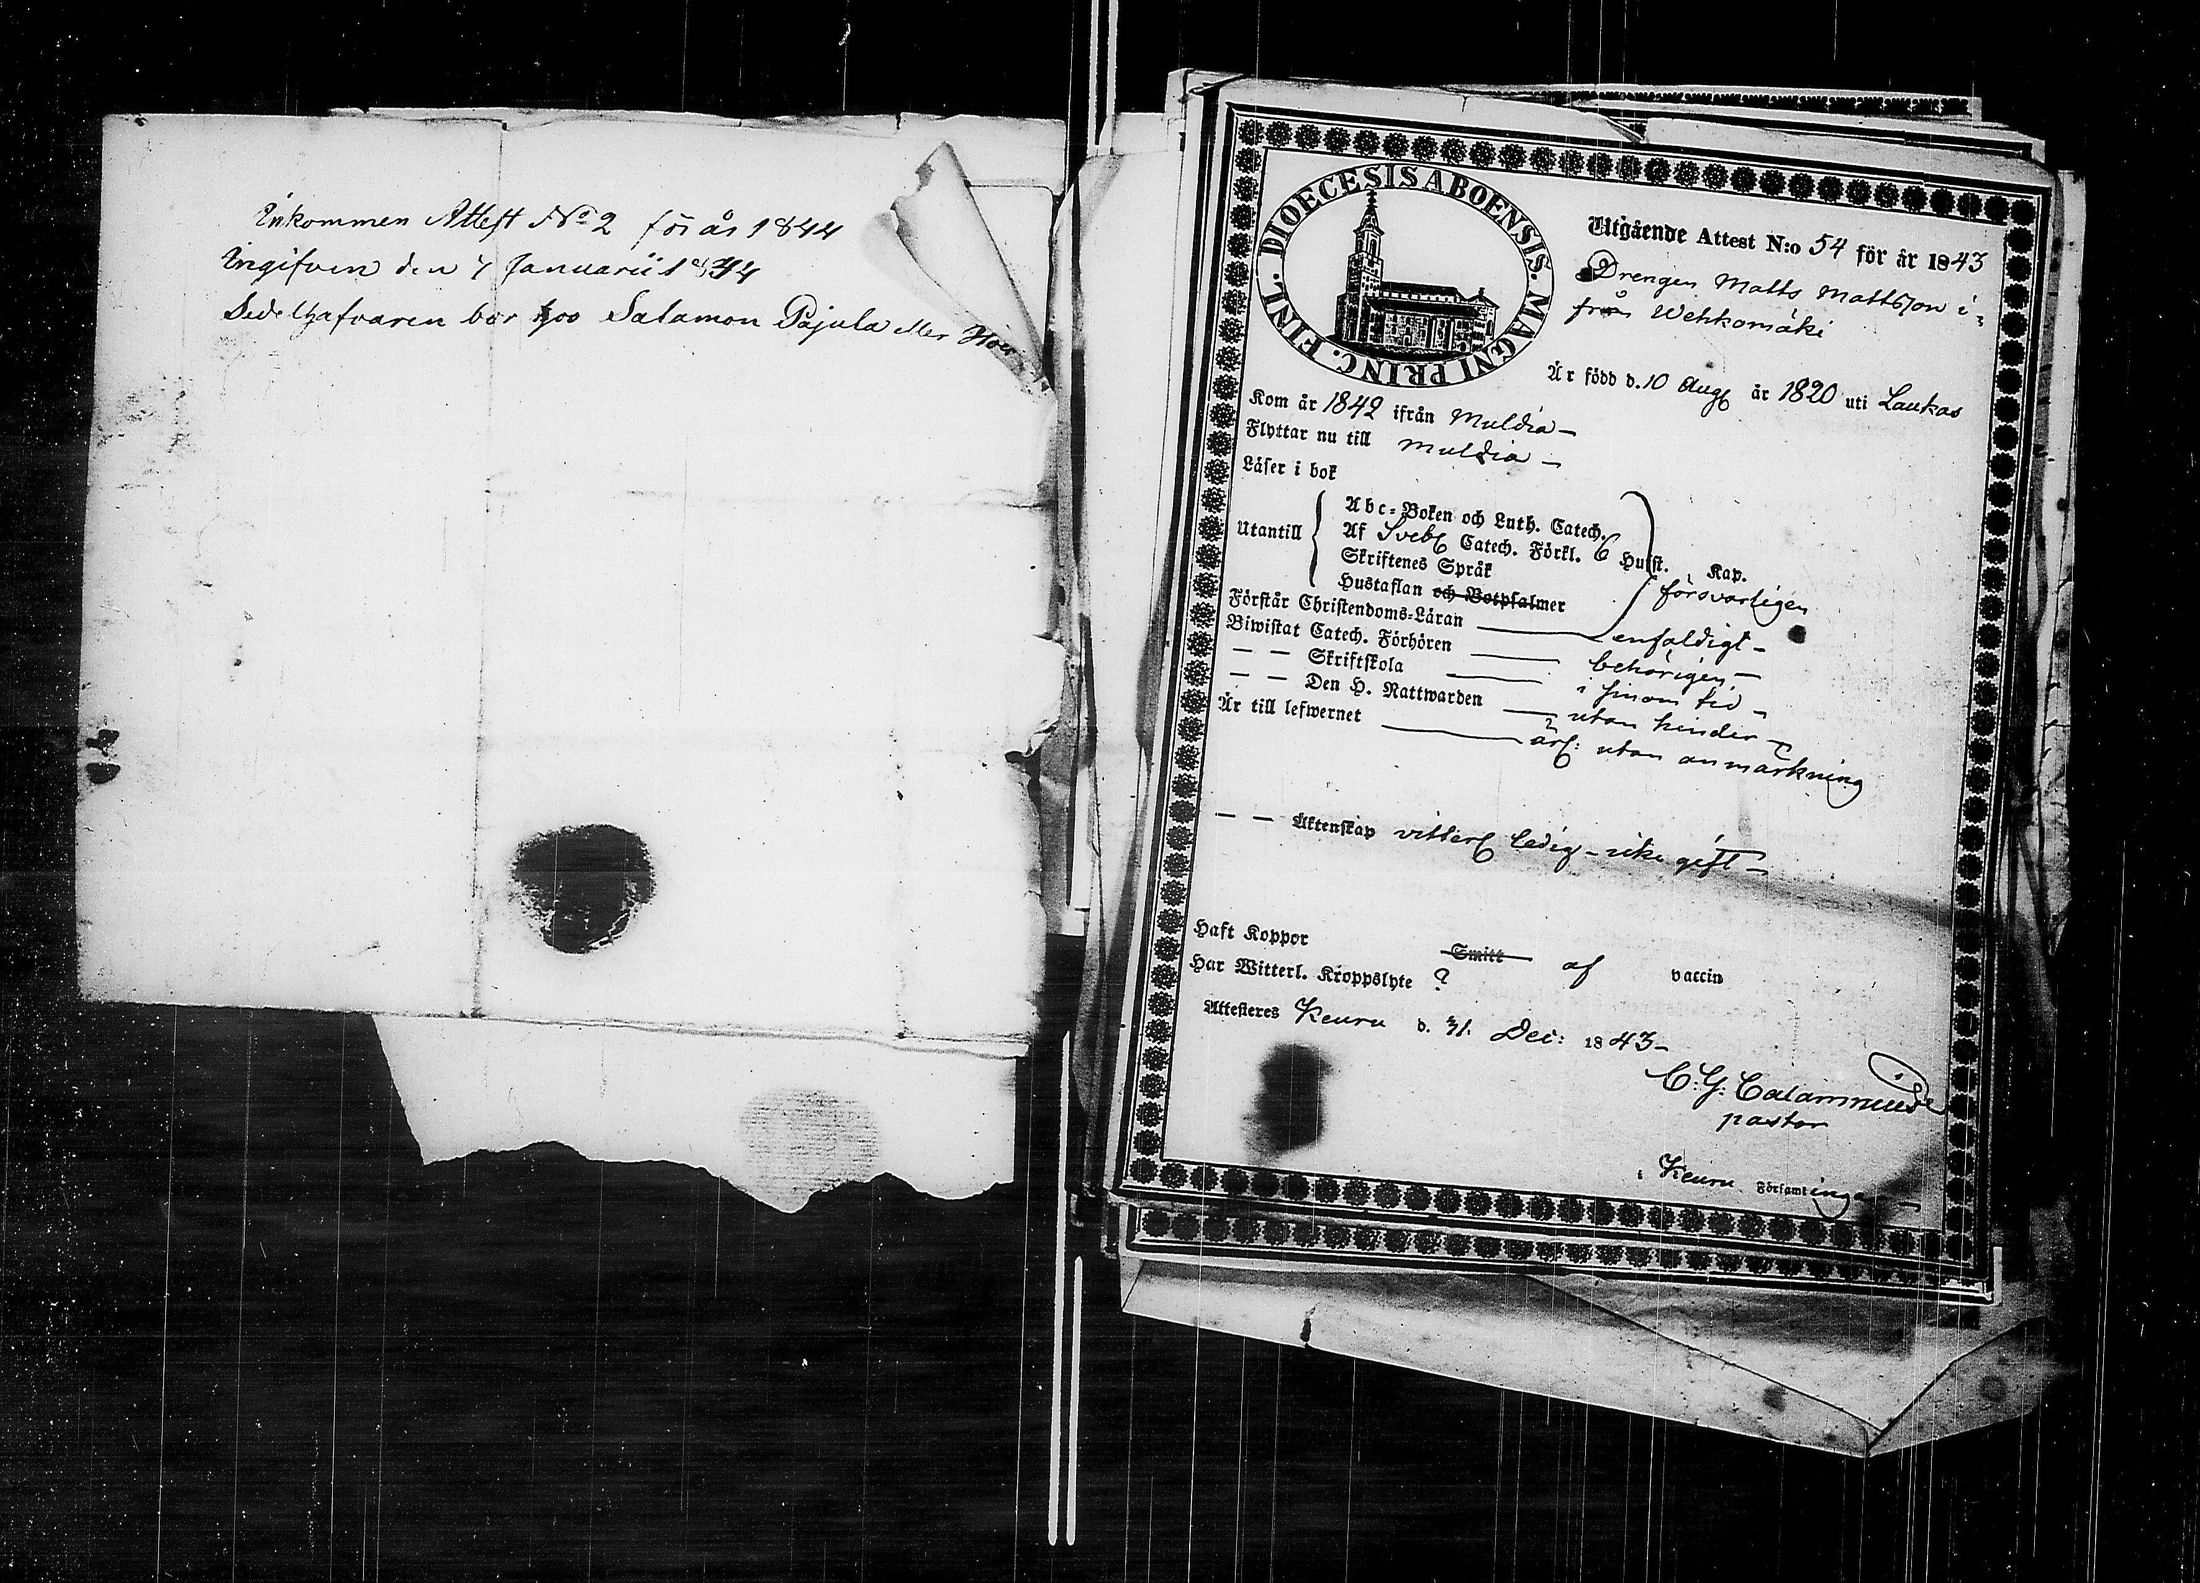 Inkommen Attest No 2 för år 1844
Ingifven den 7 Januarii 1844
Sedelhafvaren bor hos Salamon Pajula eller
DIOECESIS ABOENSIS. MAGNI PRINC. FINL.
Utgående Attest N:o 54 för år 1843
Drengen Matts Mattsson i
från Wehkomäki
Är född d. 10 Aug år 1820 uti Laukas
Kom år 1842 ifrån Muldia —
Flyttar nu till Muldia —
Läser i bok
Utantill
Abc-Boken och Luth. Catech.
Af Sveb Catech. Förkl. 6 Hufst. Kap.
Skriftenes Språk
Hustaflan och Botpsalmer försvarligen
Förstår Christendoms-Läran — enfaldigt —
Biwistat Catech. Förhören — behörigen —
— — Skriftskola — i sinom tid —
— — Den H. Nattwarden — utan hinder —
Är till lefwernet — ärl: utan anmärkning
— — Äktenskap vitterl ledig — icke gift —
Haft Koppor Smitt af vaccin
Har Witterl. Kroppslyte ?
Attesteres Keuru d. 31. Dec: 1843 —
C. G. Calamnius
pastor
i Keuru Församlinge